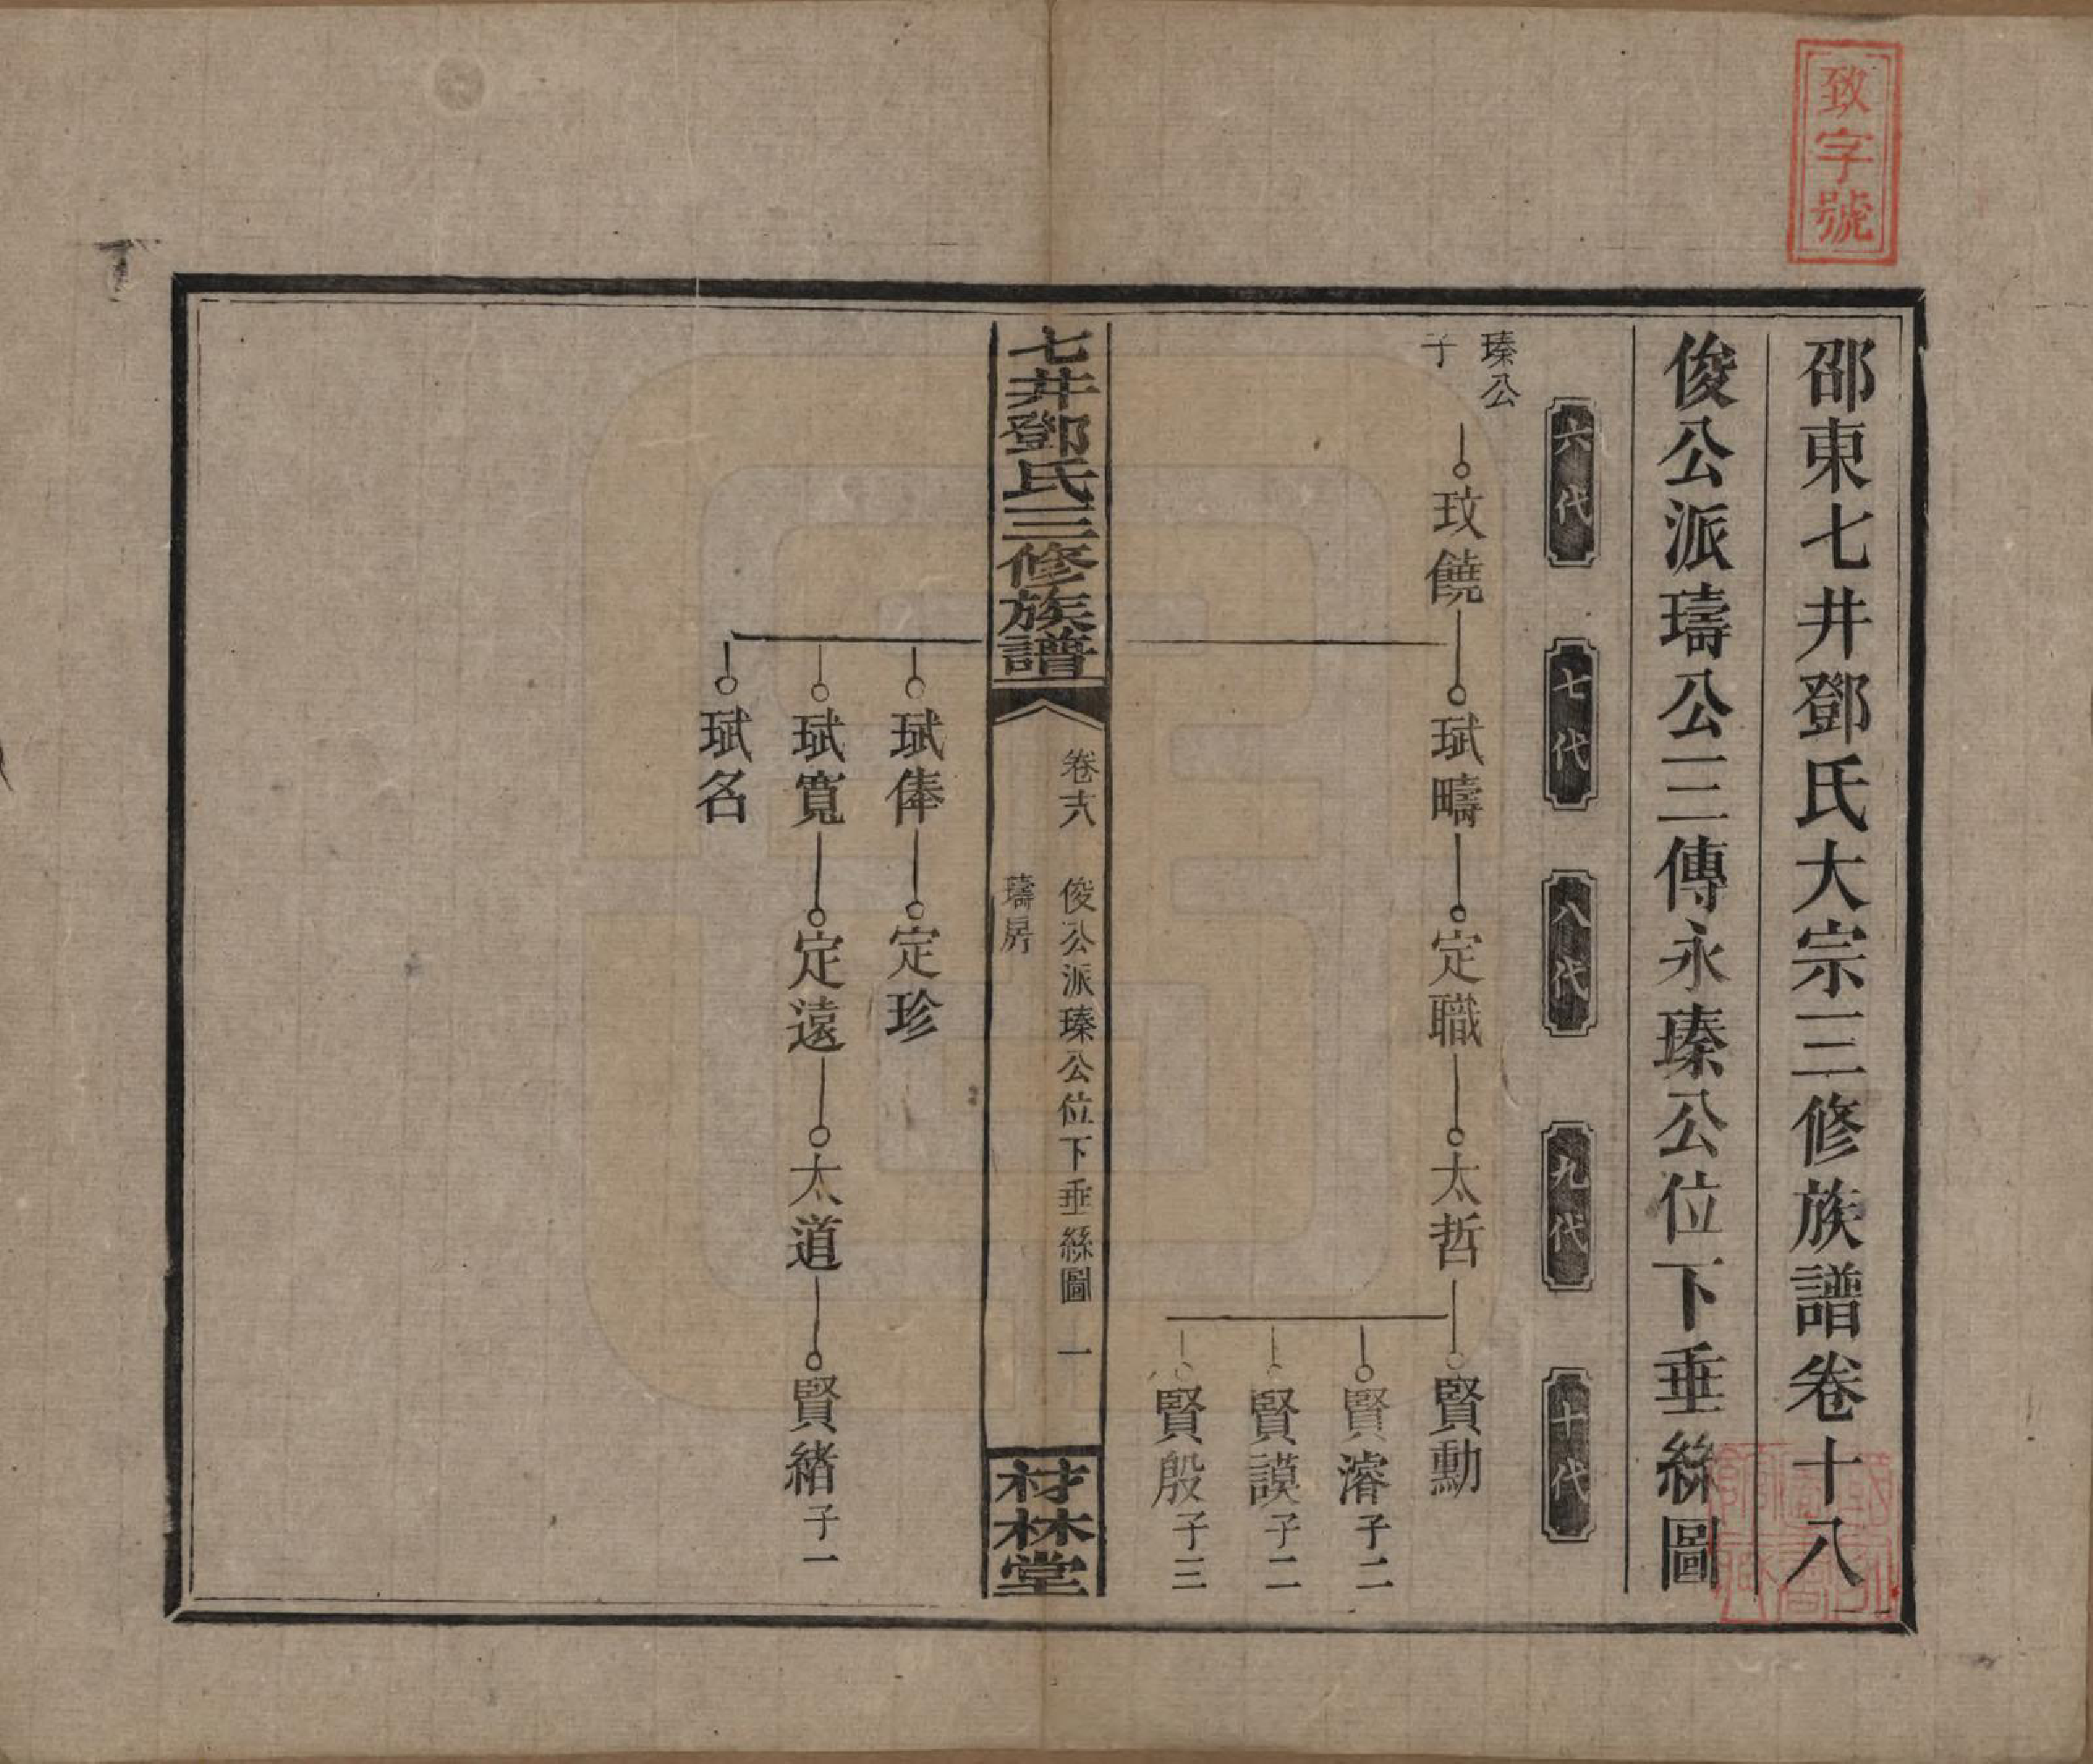 致字號
邵東七井鄧氏大宗三修族譜卷十八
俊公派璹公三傳永瑧公位下垂絲圖
六代
七代
八代
九代
十代
瑧公
子
玟饒 珷疇 定職 太哲 賢勳
賢濬 子二
賢謨 子二
賢殷 子三
七井鄧氏三修族譜
卷十八 俊公派瑧公位下垂絲圖 一
璹房
材林堂
珷俸 定珍
珷寬 定遠 太道 賢緒 子一
珷名